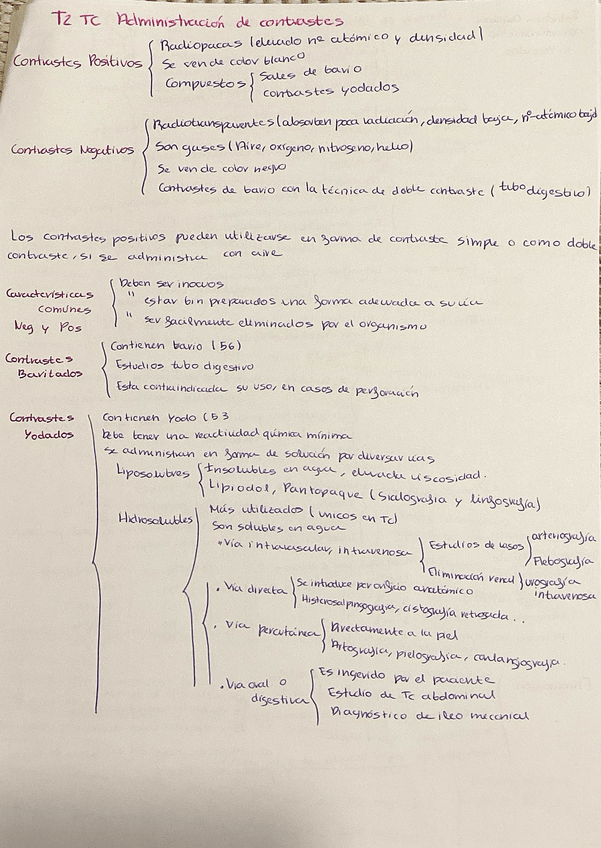 T2 TC Administración de contrastes
Contrastes Positivos
Radiopacas (elevado nº atómico y densidad)
Se ven de color blanco
Compuestos
Sales de bario
contrastes yodados
Contrastes Negativos
Radiotransparentes (absorben poca radiación, densidad baja, nº atómico bajo
Son gases (Aire, oxígeno, nitrogeno, helio)
Se ven de color negro
Contrastes de bario con la técnica de doble contraste (tubo digestivo)
Los contrastes positivos pueden utilizarse en forma de contraste simple o como doble
contraste, si se administra con aire
Características
comunes
Neg y Pos
Deben ser inocuos
" estar bin preparados una forma adecuada a su vía
" ser facilmente eliminados por el organismo
Contrastes
Baritados
Contienen bario (56)
Estudios tubo digestivo
Esta contraindicada su uso, en casos de perforación
Contrastes
Yodados
Contienen Yodo (53
Debe tener una reactividad química mínima
Se administran en forma de solución por diversas vías
Liposolubres
Insolubles en agua, elevada viscosidad.
Lipiodol, Pantopaque (Sialografía y linfografía)
Hidrosolubles
Más utilizados (únicos en TC)
Son solubles en agua
• Vía intravascular, intravenosa
Estudios de vasos
arteriografía
Flebografía
Eliminación renal
urografía
intravenosa
• Vía directa
Se introduce por orificio anatómico
Histerosalpingografía, cistografía retrograda..
• Vía percutánea
Directamente a la piel
Artografía, pielografía, conlangiografía.
• Via oral o
digestiva
Es ingerido por el paciente
Estudio de Tc abdominal
Diagnóstico de ileo mecanial